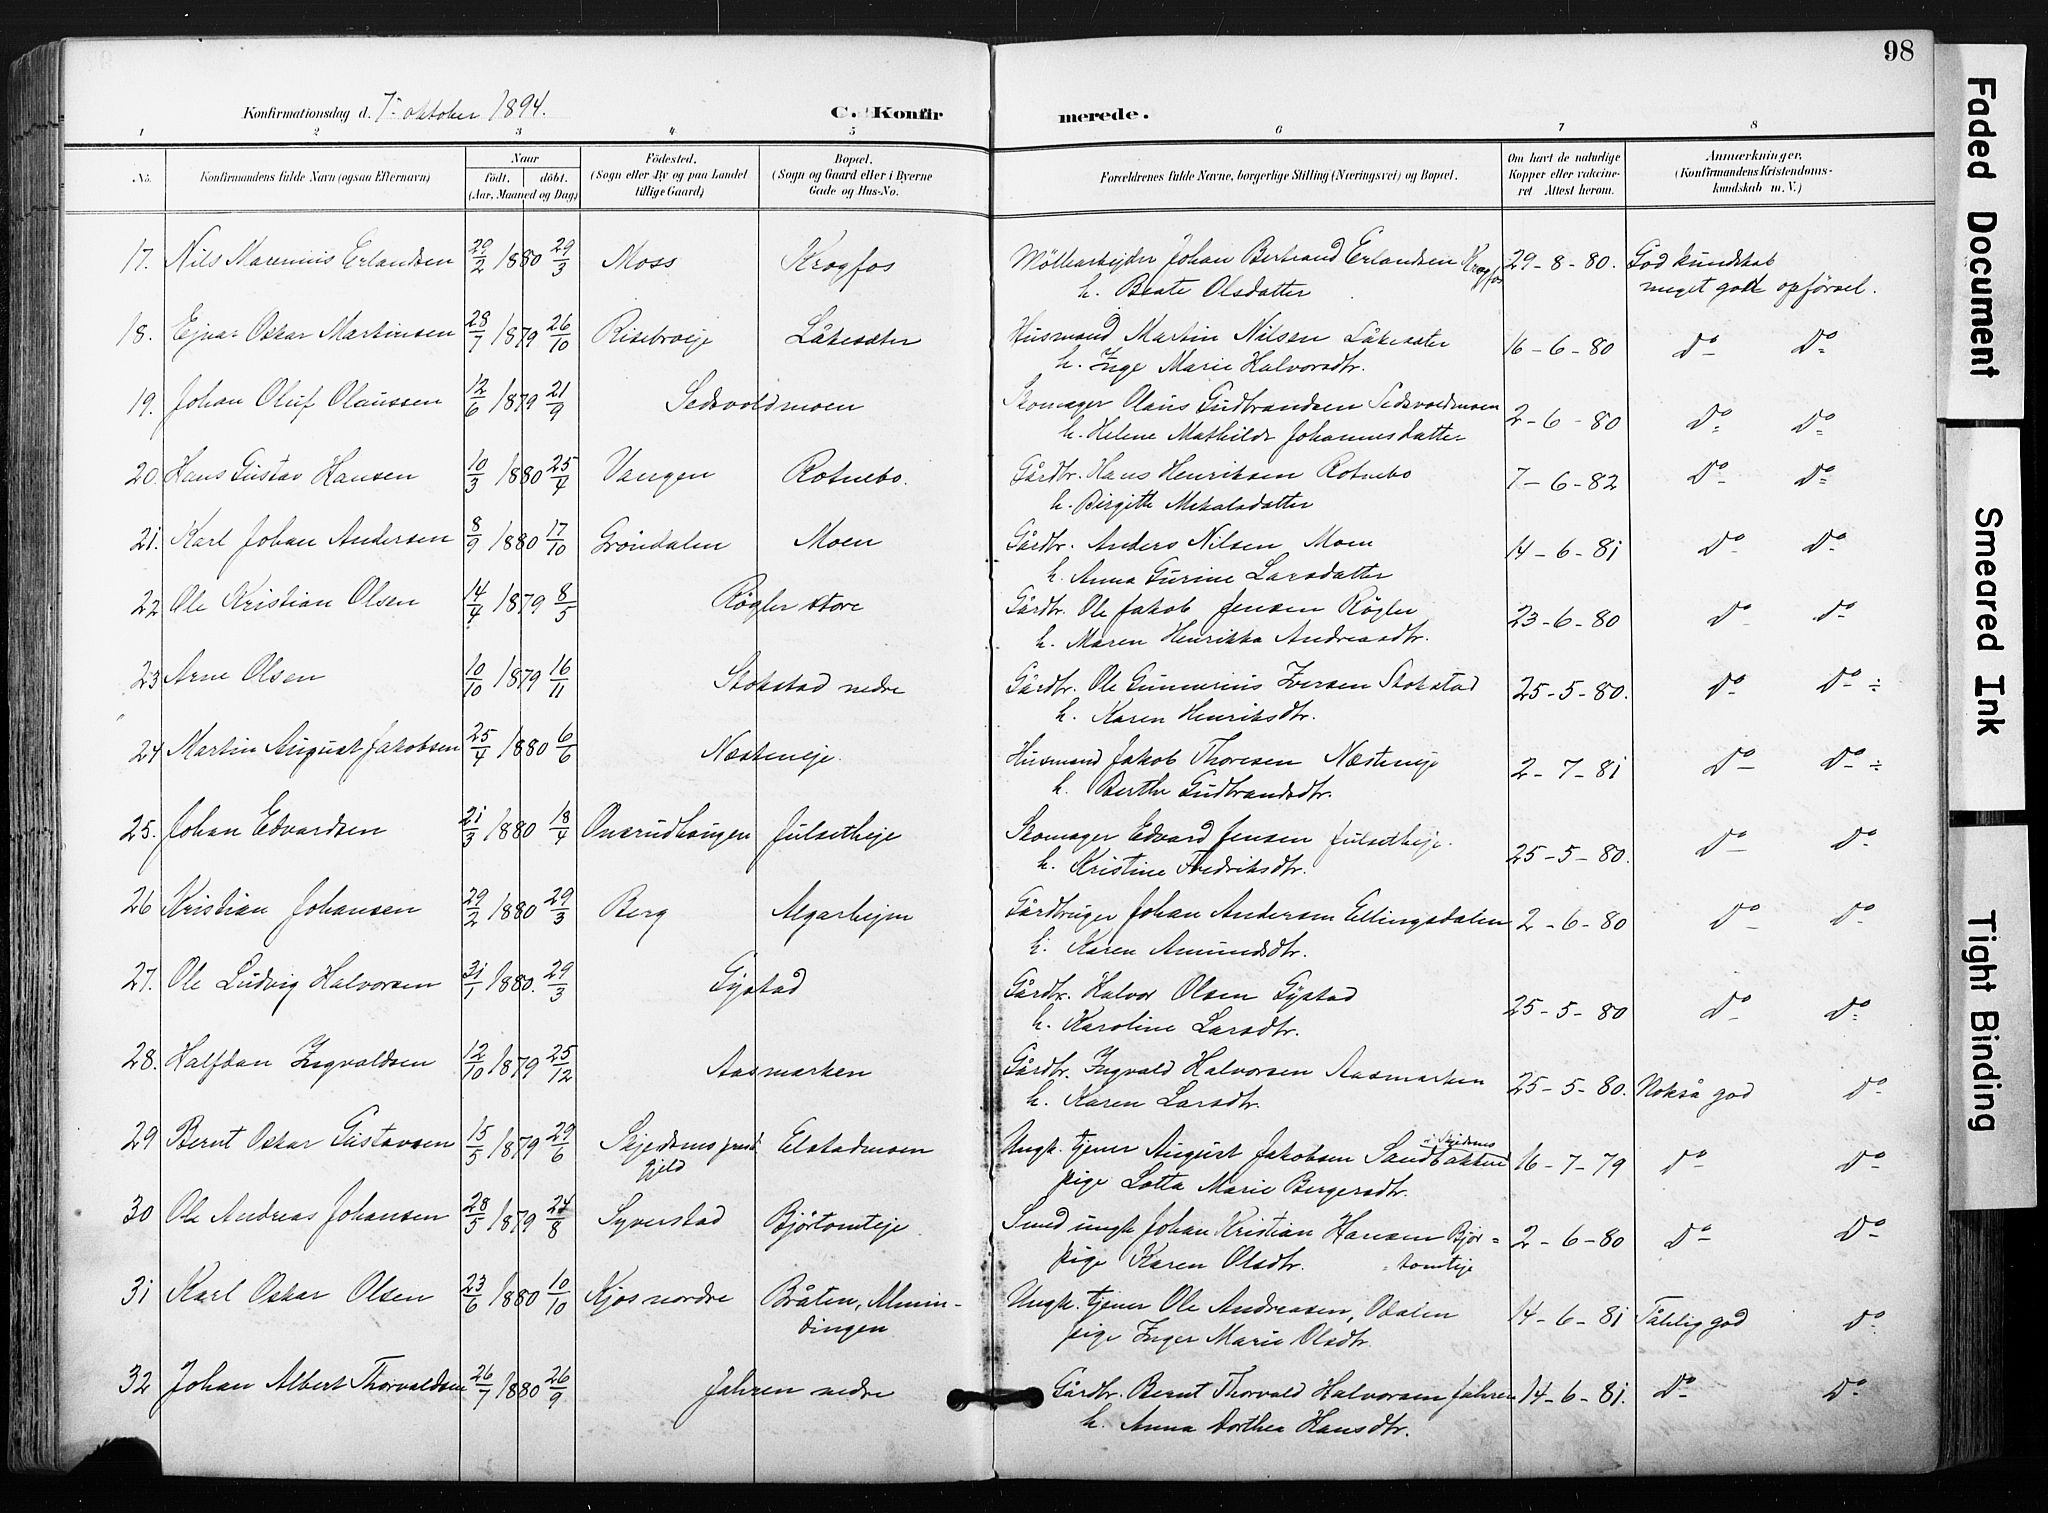 98
Konfirmationsdag d. 7. oktober 1894.
C. Konfirmerede.
1 2 3 4 5 6 7 8
No.
Konfirmandens fulde Navn (ogsaa Efternavn)
Naar
født. døbt.
(Aar, Maaned og Dag)
Fødested.
(Sogn eller By og paa Landet
tillige Gaard)
Bopæl.
(Sogn og Gaard eller i Byerne
Gade og Hus-No.
Forældrenes fulde Navne, borgerlige Stilling (Næringsvei) og Bopæl.
Om havt de naturlige
Kopper eller vaccine-
ret Attest herom.
Anmærkninger.
(Konfirmandens Kristendoms-
kundskab m. V.)
17. Nils Marenius Erlandsen 29/2 1880 29/3 Moss Krogfos Møllearbejder Johan Bertrand Erlandsen Krogfos 29-8-80. God kundskab
h. Beate Olsdatter meget godt opførsel.
18. Ejnar Oskar Martinsen 28/7 1879 26/10 Risebroeje Låkesæter Husmand Martin Nilsen Låkesæter 16-6-80 Do Do
h. Inge Marie Halvorsdtr.
19. Johan Oluf Olaussen 12/6 1879 21/9 Sedsvoldmoen Skomager Olaus Gudbrandsen Sedsvoldmoen 2-6-80 Do Do
h. Helene Mathilde Johannesdatter
20. Hans Gustav Hansen 10/3 1880 25/4 Vangen Rotnebo. Gårdbr. Hans Henriksen Rotnebo 7-6-82 Do Do
h. Birgitte Mikalsdatter
21. Karl Johan Andersen 8/9 1880 17/10 Grøndalen Moen Gårdbr. Anders Nilsen Moen 14-6-81 Do Do
h. Anna Gurine Larsdatter
22 Ole Kristian Olsen 14/4 1879 8/5 Røgler store Gårdbr. Ole Jakob Jensen Røgler 23-6-80 Do Do
h. Maren Henrikka Andreasdtr.
23 Arne Olsen 10/10 1879 16/11 Stokstad nedre Gårdbr. Ole Gunnerius Iversen Stokstad 25-5-80. Do Do ÷
h. Karen Henriksdtr.
24 Martin August Jakobsen 25/4 1880 6/6 Næsteneje. Husmand Jakob Thoresen Næsteneje 2-7-81 Do Do ÷
h. Berthe Gudbrandsdtr.
25. Johan Edvardsen 21/3 1880 18/4 Onsrudhaugen Julsetheje Skomager Edvard Jensen Julsetheje. 25-5-80. Do Do
h. Kristine Fredriksdtr.
26 Kristian Johansen 29/2 1880 29/3 Berg Algarhejm Gårdbruger Johan Andersen Ellingsdalen 2-6-80 Do Do
h. Karen Amundsdtr.
27. Ole Ludvig Halvorsen 31/1 1880. 29/3 Gystad Gårdbr. Halvor Olsen Gystad 25-5-80 Do Do
h. Karoline Larsdtr.
28. Halfdan Ingvaldsen 12/10 1879 25/12 Aasmarken Gårdbr. Ingvald Halvorsen Aasmarken 25-5-80. Nokså god Do
h. Karen Larsdtr.
29 Bernt Oskar Gustavsen 15/5 1879 29/6 Skjedsmo præste Elstadmoen Ungk. tjener August Jakobsen Sandbakken i Skedsmo 16-7-79 Do Do
gjeld pige Lotta Marie Bergersdtr.
30 Ole Andreas Johansen 28/5 1879 24/8 Syverstad Bjørtomteje. Smed ungk. Johan Kristian Hansen Bjør= 2-6-80 Do Do
pige Karen Olsdtr. =tomteje
31 Karl Oskar Olsen 23/6 1880 10/10 Kjos nordre Bråten, Almin- Ungk. tjener Ole Andreasen, Odalen 14-6-81 Tålelig god Do
dingen pige Inger Marie Olsdtr.
32 Johan Albert Thorvaldsen 26/7 1880 26/9 Jahren nedre Gårdbr. Bernt Thorvald Halvorsen Jahren 14-6-81. Do Do
h. Anna Dorthea Hansdtr.
Faded Document
Smeared Ink
Tight Binding